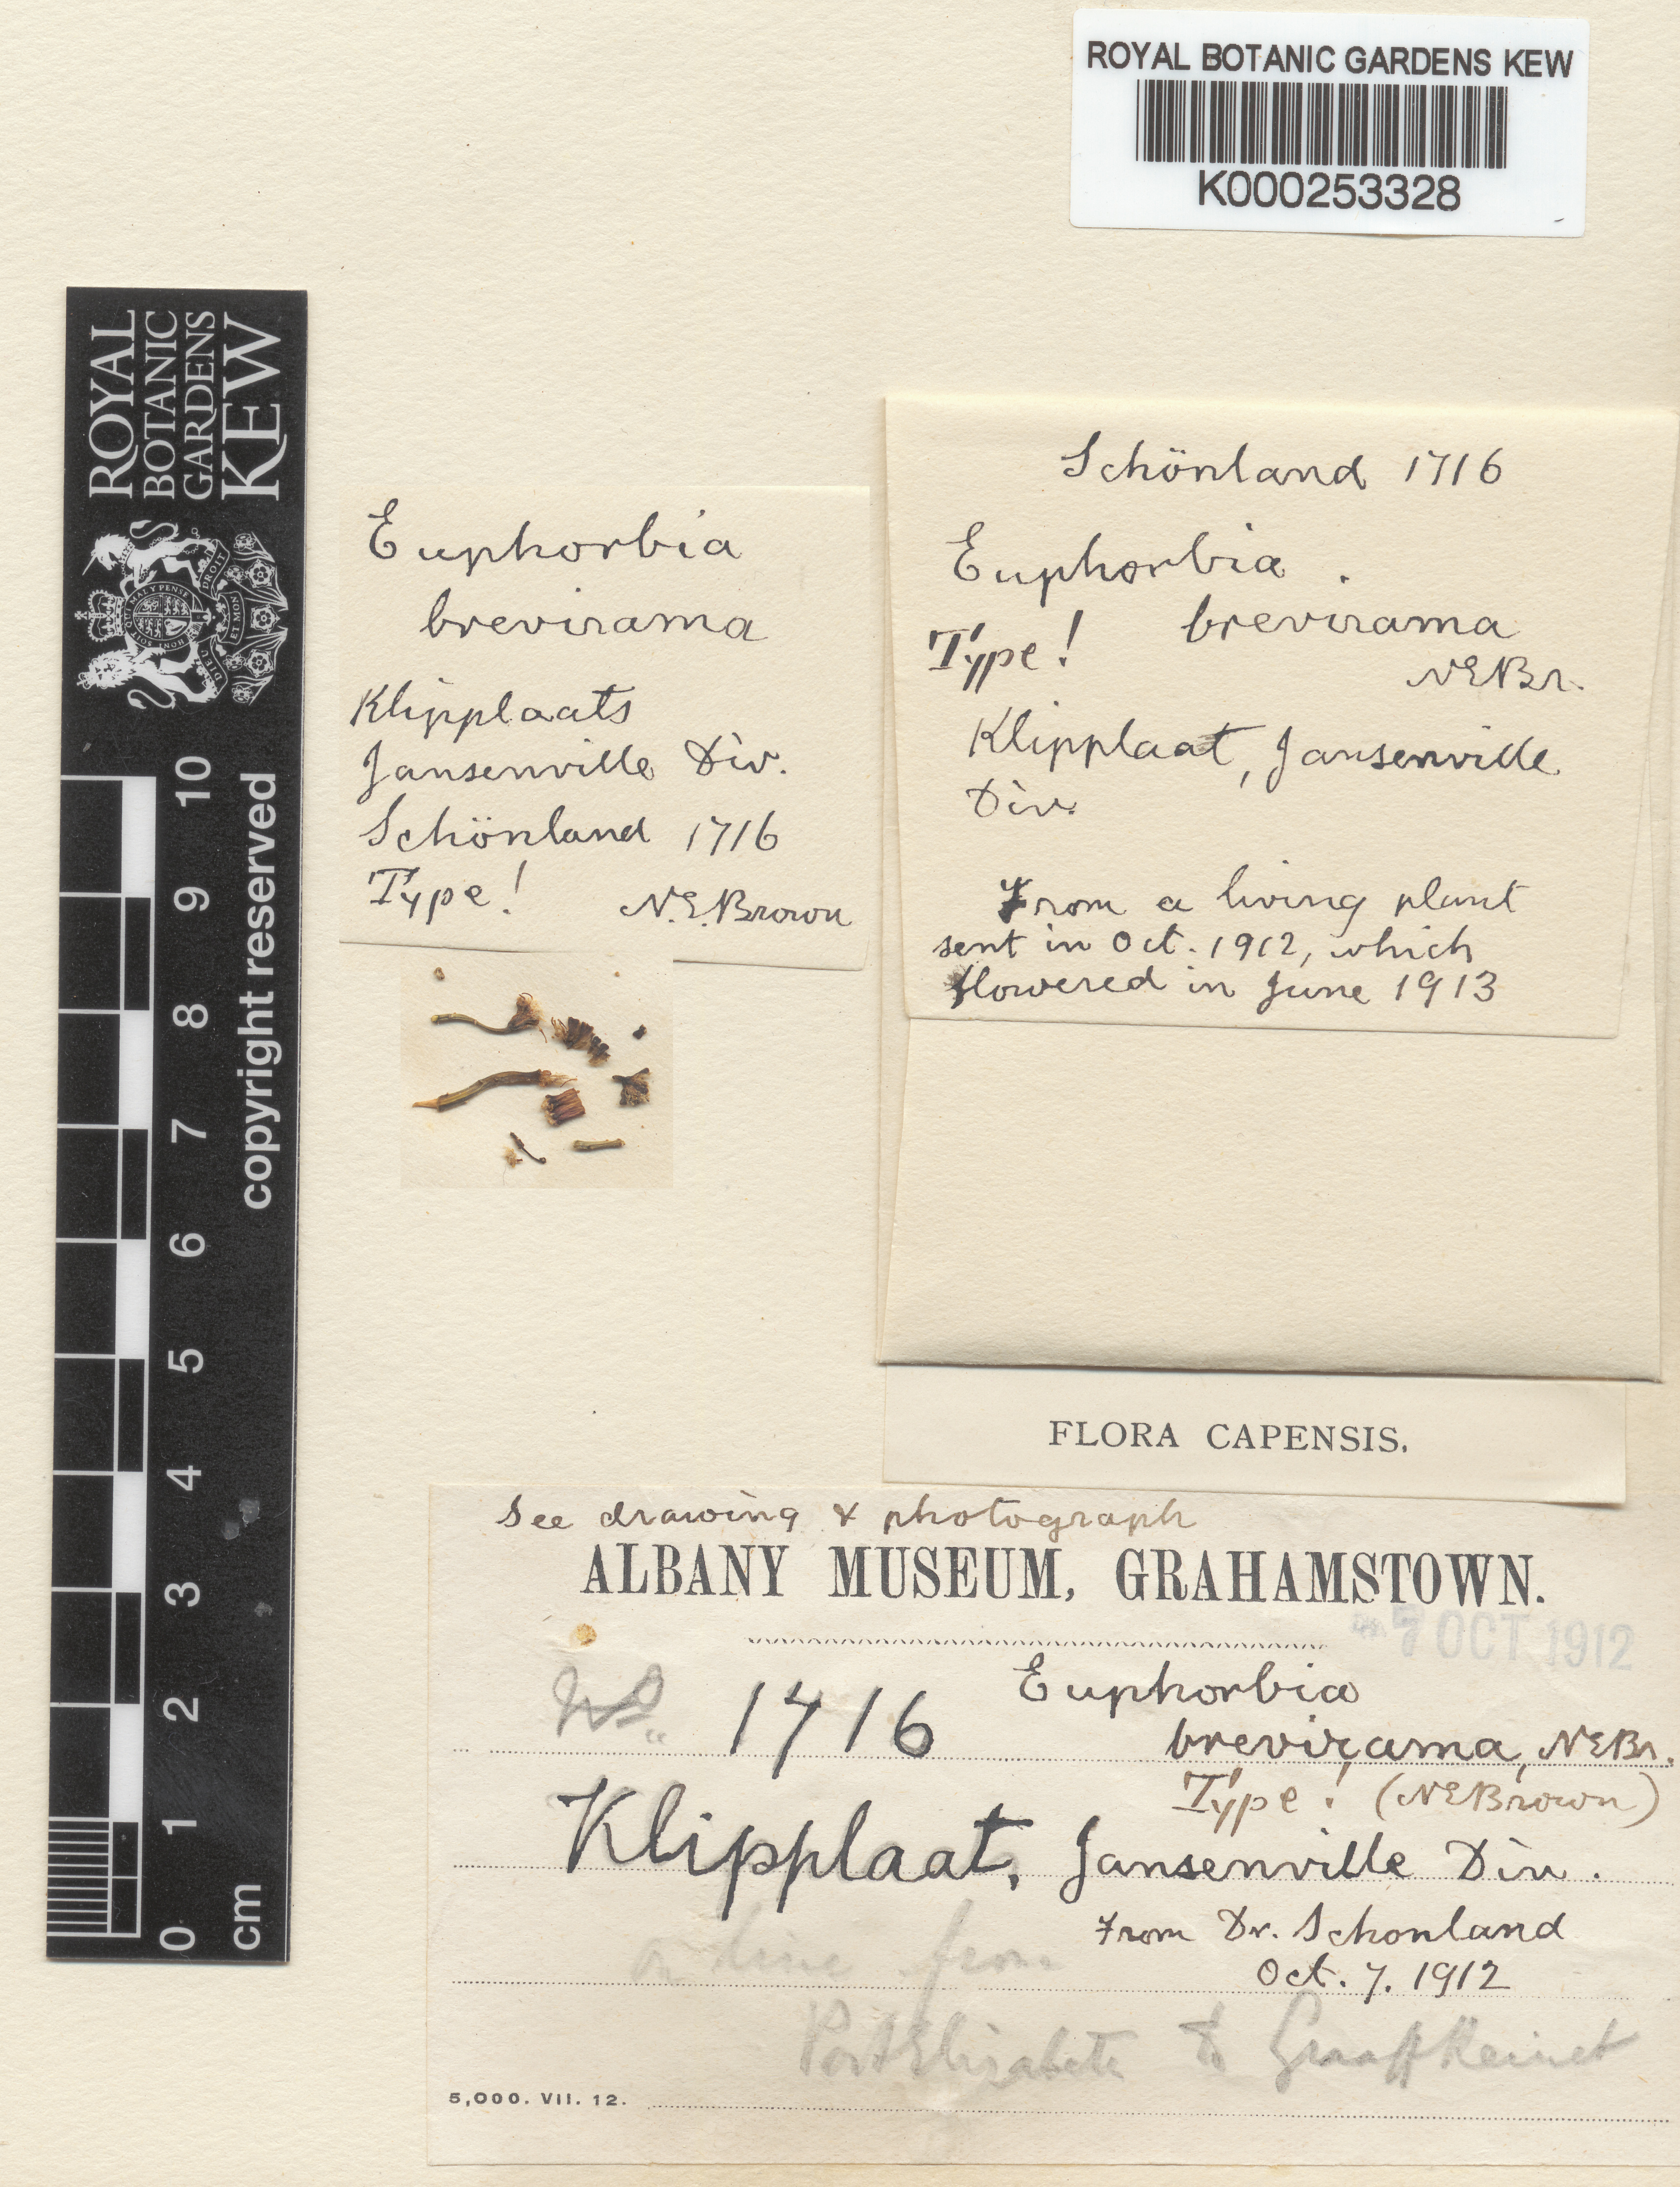 ROYAL BOTANIC GARDENS KEW
K000253328
ROYAL
BOTANIC
GARDENS
KEW
copyright reserved
10
9
8
7
6
5
4
3
2
1
0
cm
Euphorbia
brevirama
Klipplaats
Jansenville Div.
Schönland 1716
Type! N.E.Brown
Schönland 1716
Euphorbia
brevirama
Type!
NEBr.
Klipplaat, Jansenville
Div.
From a living plant
sent in Oct. 1912, which
flowered in June 1913
FLORA CAPENSIS.
See drawing & photograph
ALBANY MUSEUM, GRAHAMSTOWN.
7 OCT 1912
No. 1716 Euphorbia
brevirama, NEBr.
Type! (NEBrown)
Klipplaat, Jansenville Div.
From Dr. Schonland
on line from
Oct. 7. 1912
Port Elizabeth to Graaff Reinet
5,000. VII. 12.